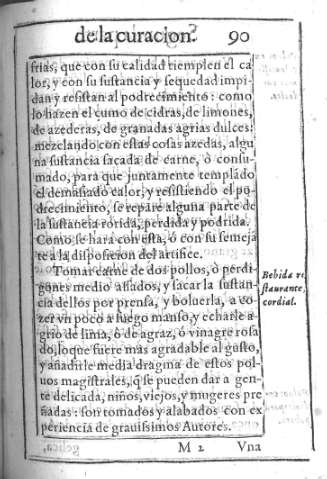 de la curacion. 90
frias, que con su calidad tiemplen el ca
lor, y con su sustancia y sequedad impi-
dan y resistan al podrecimiento: como
lo hazen el çumo de cidras, de limones,
de azederas, de granadas agrias dulces:
mezclando con estas cosas azedas, algu
na sustancia sacada de carne, ò consu-
mado, para que juntamente templãdo
el demasiado calor, y resistiendo el po-
drecimiento, se repare alguna parte de
la sustancia rorida, perdida y podrida.
Como se hara con esta, ò con su semejã
te a la disposicion del artifice.
Tomar carne de dos pollos, ò perdi-
gones medio assados, y sacar la sustan-
cia dellos por prensa, y boluerla, a co-
zer vn poco a fuego manso, y echarle a-
grio de lima, ò de agraz, ò vinagre rosa
do, lo que fuere mas agradable al gusto,
y añadirle media dragma de estos pol-
uos magistrales, q̃ se pueden dar a gen-
te delicada, niños, viejos, y mugeres pre
ñadas: son tomados y alabados con ex
periencia de grauissimos Autores.
Bebida re
staurante,
cordial.
M 2 Vna